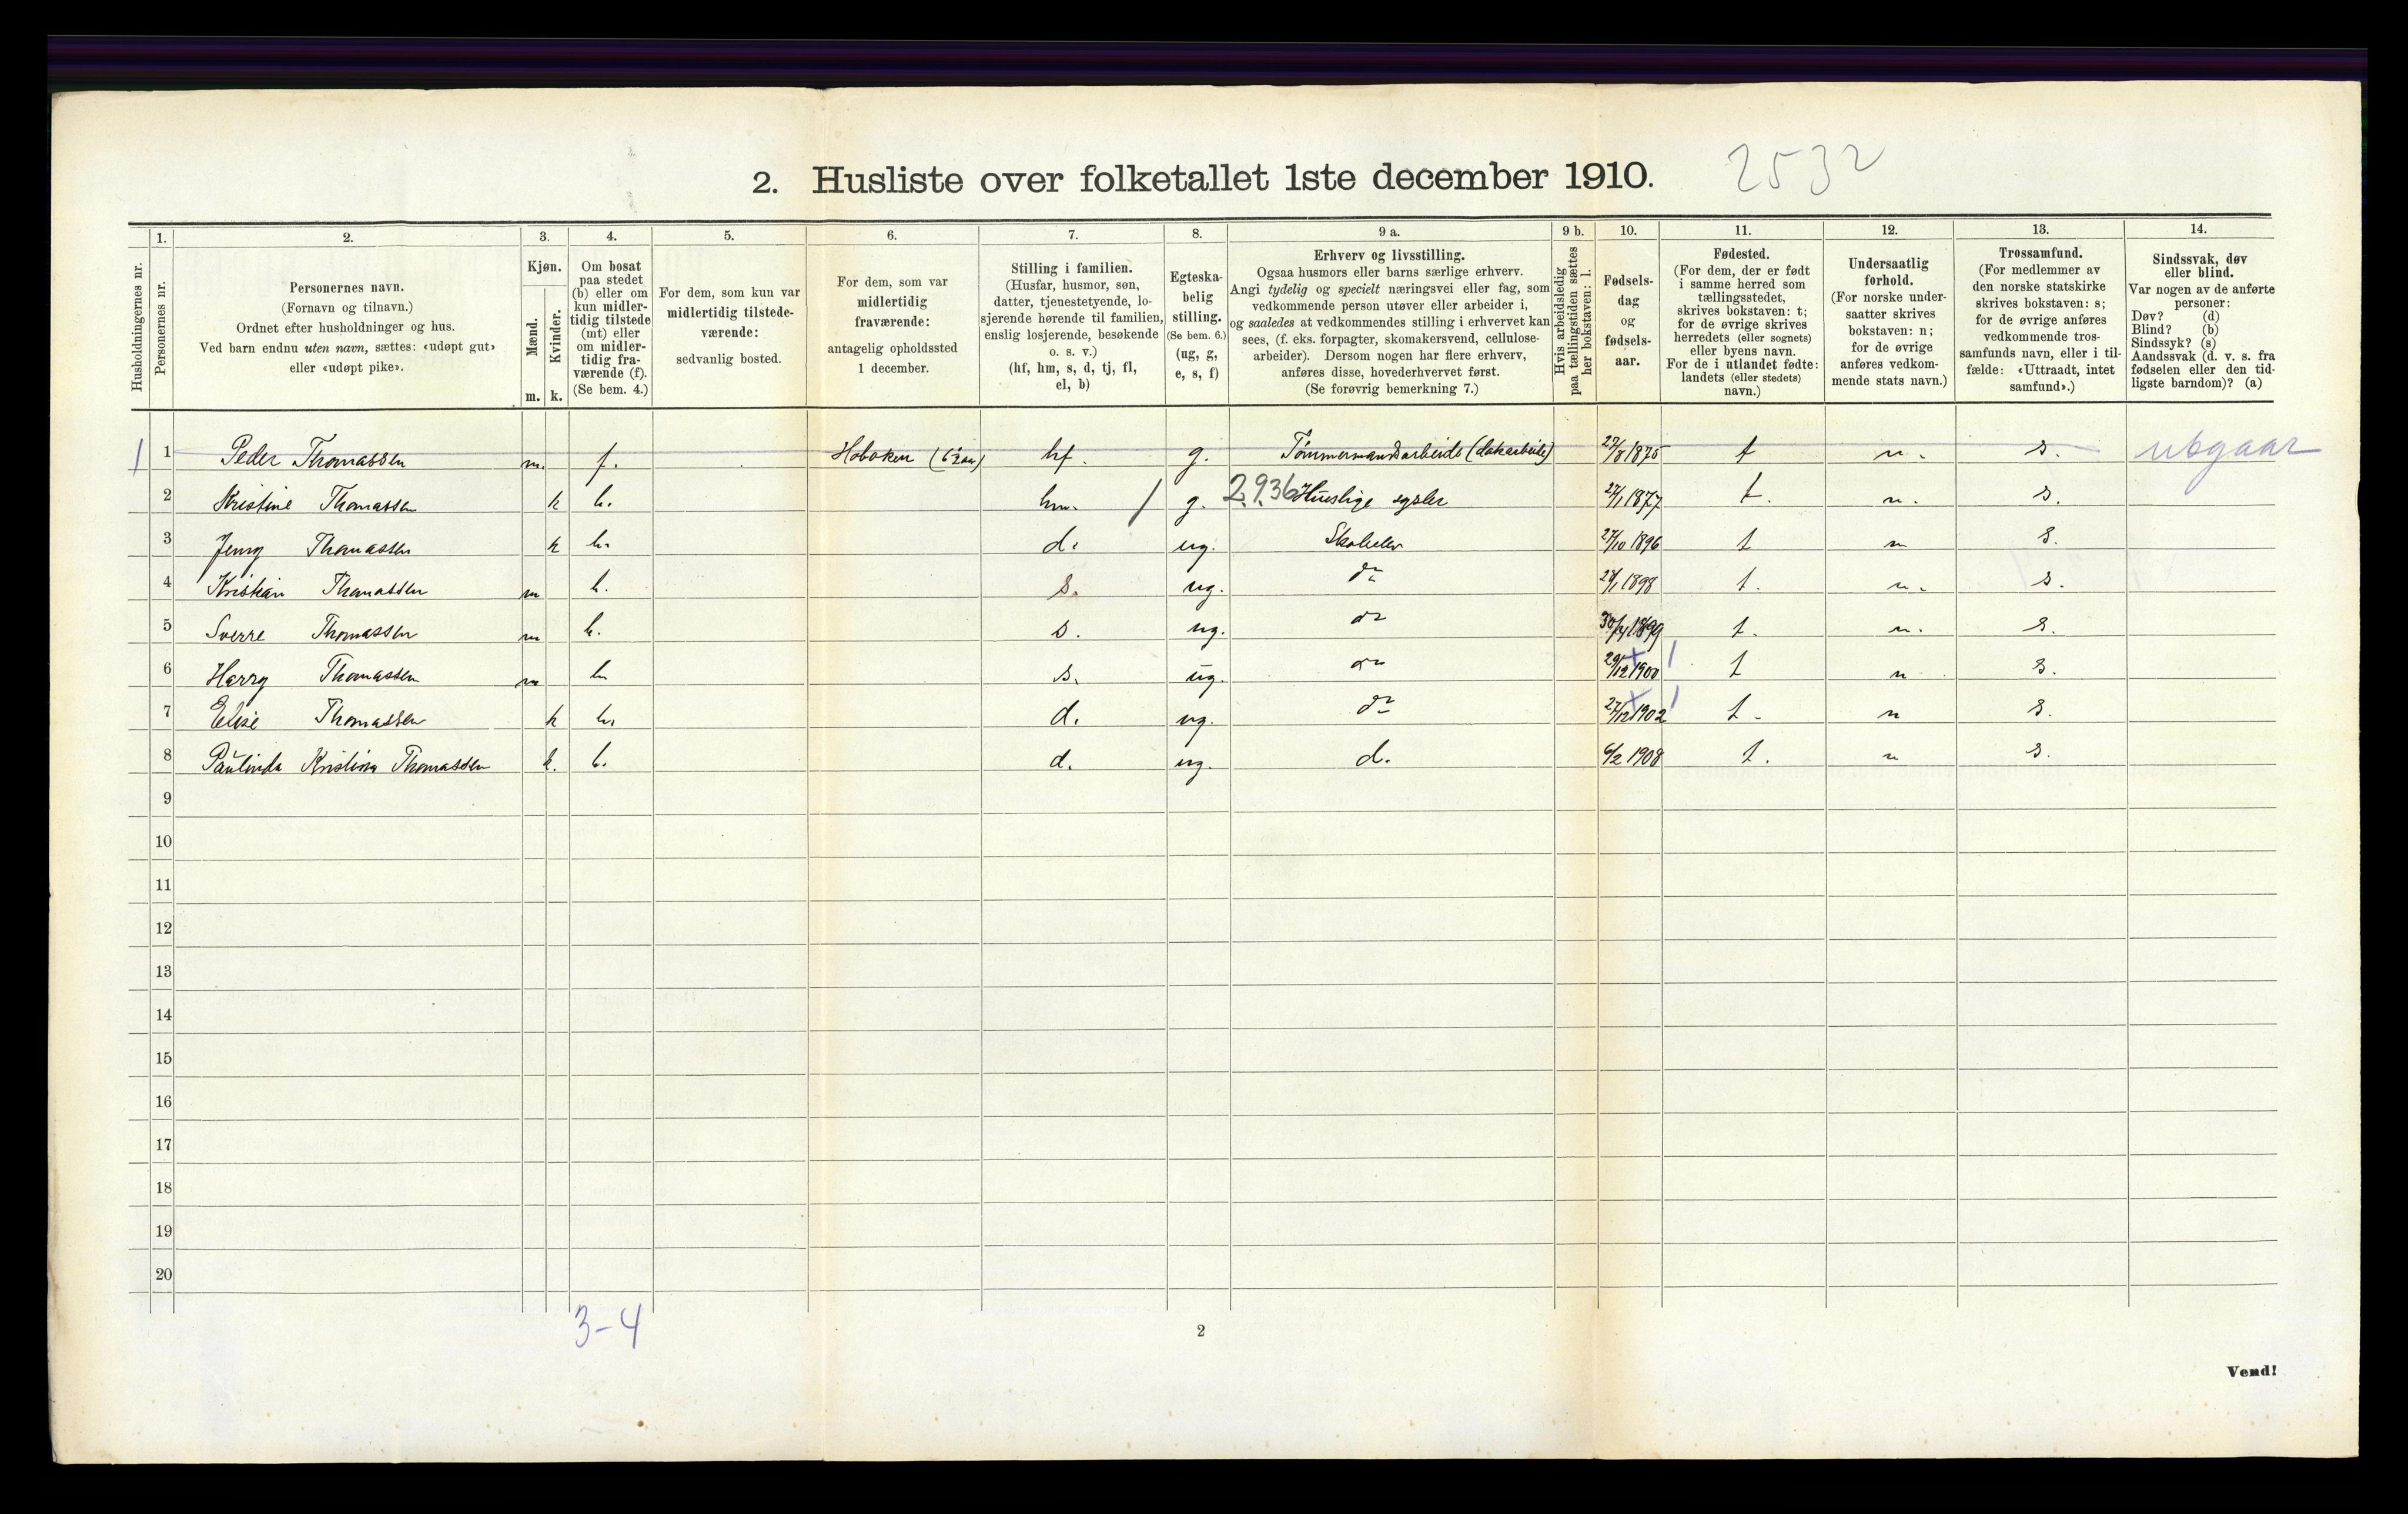 2. Husliste over folketallet 1ste december 1910. 2532
1. 2. 3. 4. 5. 6. 7. 8. 9 a. 9 b. 10. 11. 12. 13. 14.
Husholdningernes nr.
Personernes nr.
Personernes navn.
(Fornavn og tilnavn.)
Ordnet efter husholdninger og hus.
Ved barn endnu uten navn, sættes: «udøpt gut»
eller «udøpt pike».
Kjøn.
Mænd.
Kvinder.
m. k.
Om bosat
paa stedet
(b) eller om
kun midler-
tidig tilstede
(mt) eller
om midler-
tidig fra-
værende (f).
(Se bem. 4.)
For dem, som kun var
midlertidig tilstede-
værende:
sedvanlig bosted.
For dem, som var
midlertidig
fraværende:
antagelig opholdssted
1 december.
Stilling i familien.
(Husfar, husmor, søn,
datter, tjenestetyende, lo-
sjerende hørende til familien,
enslig losjerende, besøkende
o. s. v.)
(hf, hm, s, d, tj, fl,
el, b)
Egteska-
belig
stilling.
(Se bem. 6.)
(ug, g,
e, s, f)
Erhverv og livsstilling.
Ogsaa husmors eller barns særlige erhverv.
Angi tydelig og specielt næringsvei eller fag, som
vedkommende person utøver eller arbeider i,
og saaledes at vedkommendes stilling i erhvervet kan
sees, (f. eks. forpagter, skomakersvend, cellulose-
arbeider). Dersom nogen har flere erhverv,
anføres disse, hovederhvervet først.
(Se forøvrig bemerkning 7.)
Hvis arbeidsledig
paa tællingstiden sættes
her bokstaven: l.
Fødsels-
dag
og
fødsels-
aar.
Fødested.
(For dem, der er født
i samme herred som
tællingsstedet,
skrives bokstaven: t;
for de øvrige skrives
herredets (eller sognets)
eller byens navn.
For de i utlandet fødte:
landets (eller stedets)
navn.)
Undersaatlig
forhold.
(For norske under-
saatter skrives
bokstaven: n;
for de øvrige
anføres vedkom-
mende stats navn.)
Trossamfund.
(For medlemmer av
den norske statskirke
skrives bokstaven: s;
for de øvrige anføres
vedkommende tros-
samfunds navn, eller i til-
fælde: «Uttraadt, intet
samfund».)
Sindssvak, døv
eller blind.
Var nogen av de anførte
personer:
Døv? (d)
Blind? (b)
Sindssyk? (s)
Aandssvak (d. v. s. fra
fødselen eller den tid-
ligste barndom)? (a)
1 1 Peder Thomassen m. f. Hoboken hf. g. Tømmermandsarbeide (dokarbeide) 27/8 1875 t n. s. utgaar
2 Kristine Thomassen k b. hm. / g. 2.936 Huuslige sysler 27/1 1877 t. n. s.
3 Jenny Thomassen k b. d. ug. Skoleelev 27/10 1896 t n s.
4 Kristian Thomassen m b. s. ug. do 1898 t. n. s.
5 Sverre Thomassen m b. s. ug. do 1899 t. n. s.
6 Harry Thomassen m b s. ug. do 29/12 1900 t n s.
7 Elise Thomassen k b. d. ug. do 27/12 1902 t. n s.
8 Paulinda Kristina Thomassen k. b. d. ug. d. 6/2 1908 t. n s.
9
10
11
12
13
14
15
16
17
18
19
20
3-4
2
Vend!